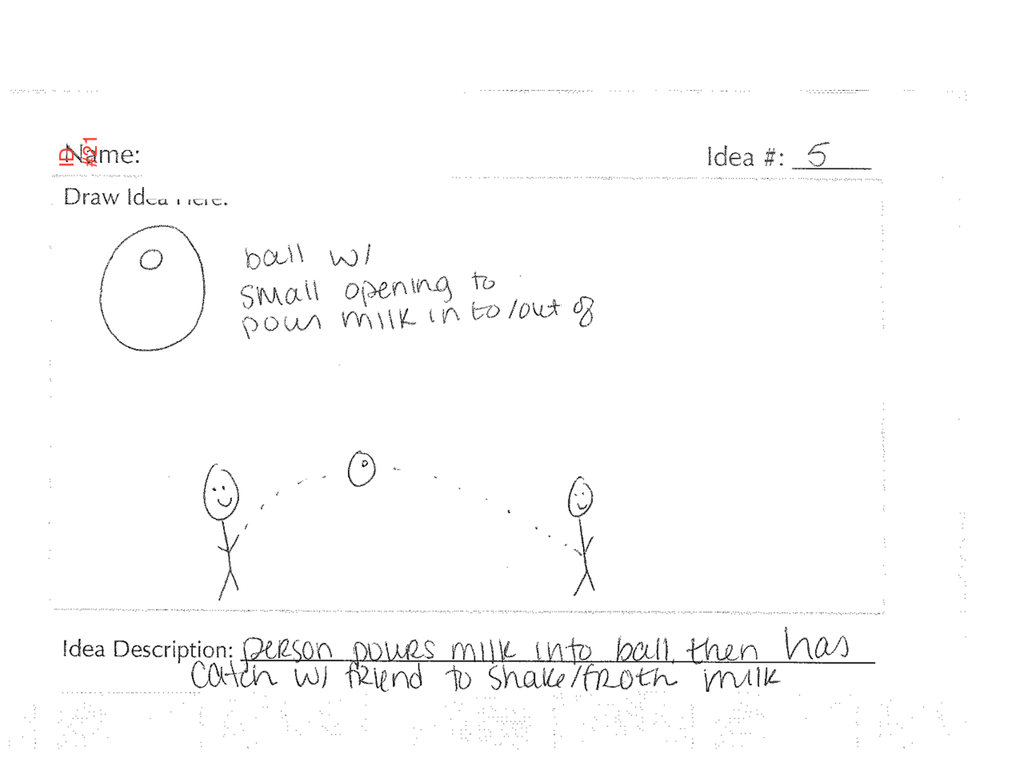 ID #21
Name:
Idea #: 5
Draw Idea Here:
ball w/
small opening to
pour milk into/out of
Idea Description: person pours milk into ball, then has
catch w/ friend to shake/froth milk